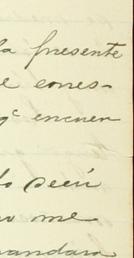 la presente
e corres-
qe encuen
me
mandara